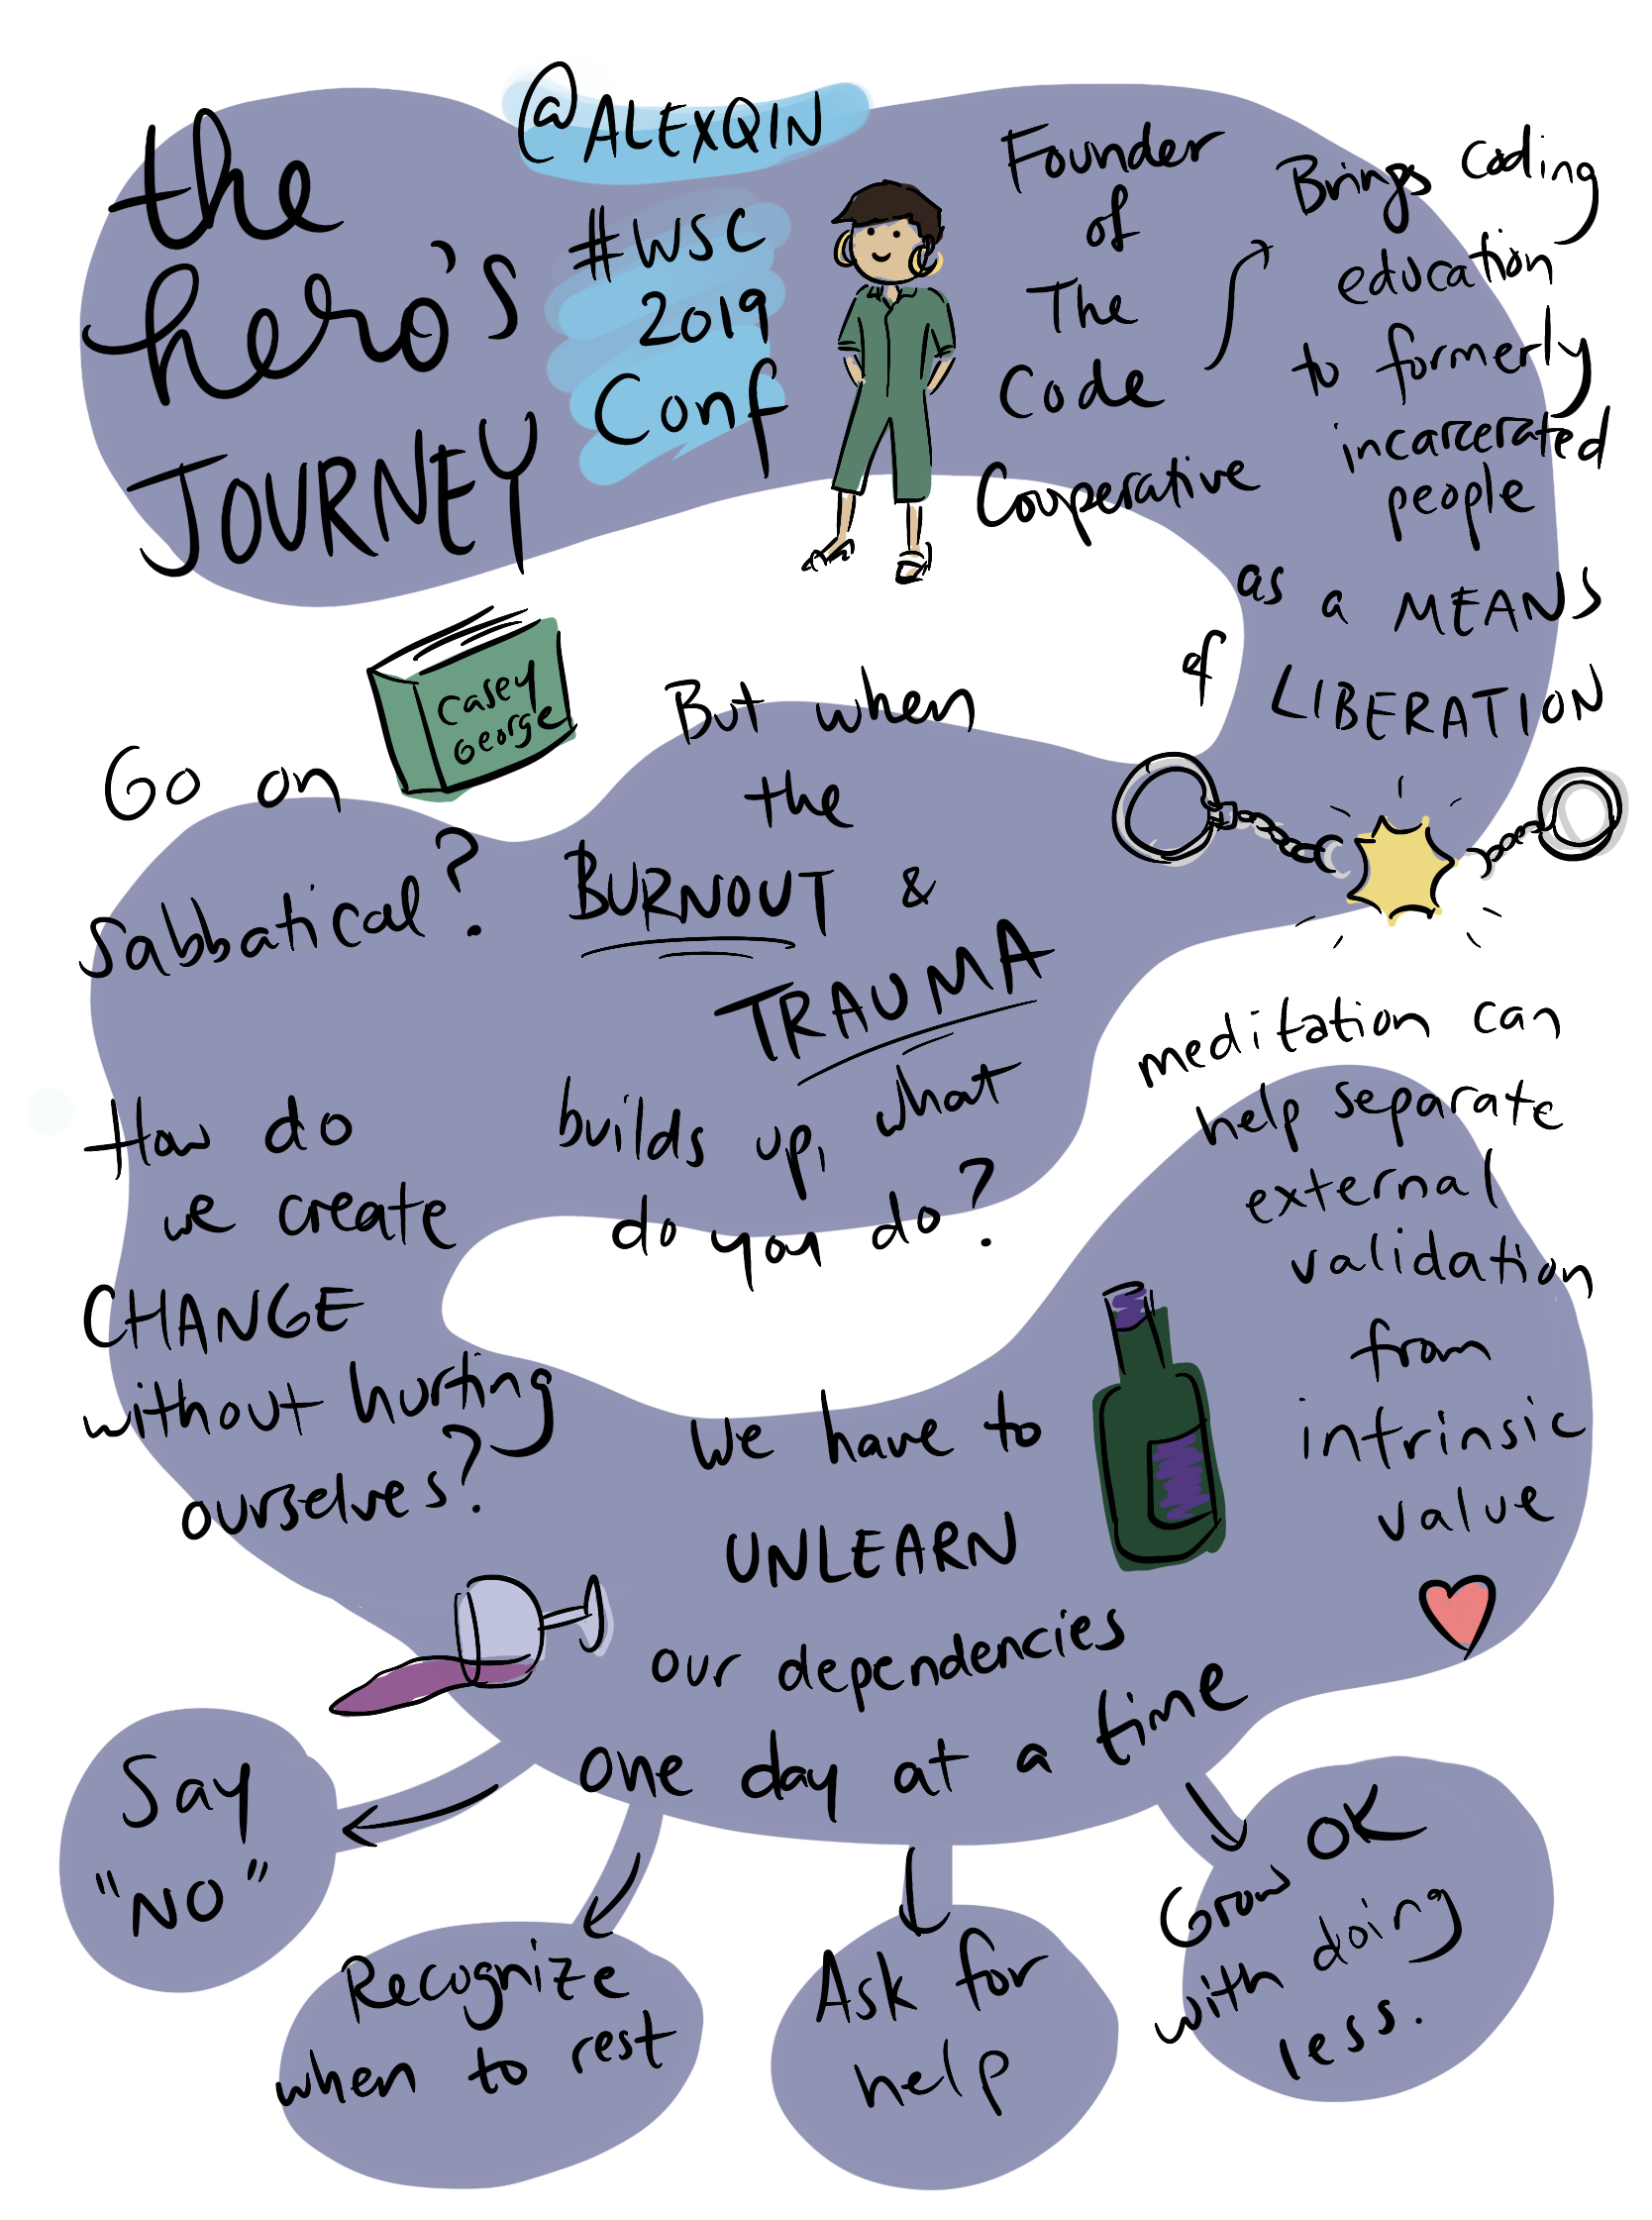 the
hero's
JOURNEY
@ALEXQIN
#WSC
2019
Conf
Founder
of
The
Code
Cooperative
Brings coding
education
to formerly
incarcerated
people
as a MEANS
of LIBERATION
But when
the
BURNOUT &
TRAUMA
builds up, what
do you do?
Casey
George
Go on
sabbatical?
How do
we create
CHANGE
without hurting
ourselves?
We have to
UNLEARN
our dependencies
one day at a time
meditation can
help separate
external
validation
from
intrinsic
value
Say
"NO"
Recognize
when to rest
Ask for
help
Grow OK
with doing
less.